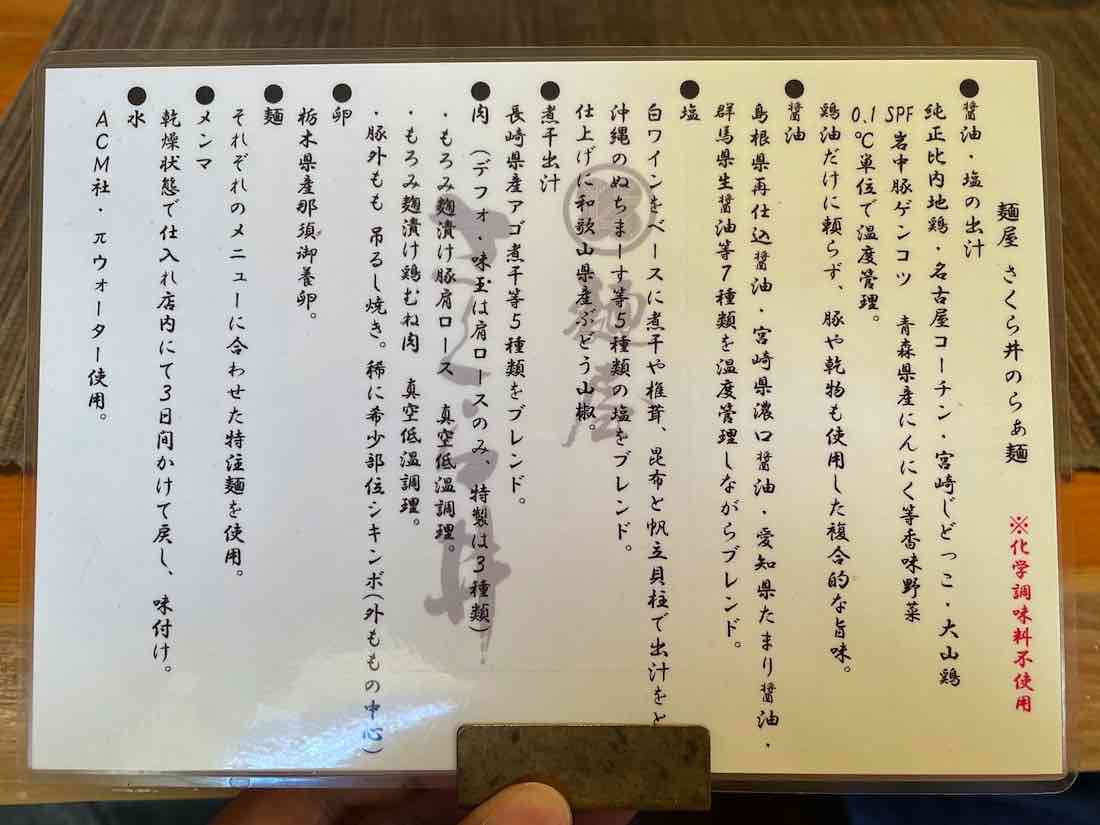 麺屋 さくら井のらぁ麺 ※化学調味料不使用
●醤油・塩の出汁
純正比内地鶏・名古屋コーチン・宮崎じどっこ・大山鶏
SPF岩中豚ゲンコツ 青森県産にんにく等香味野菜
0.1℃単位で温度管理。
鶏油だけに頼らず、豚や乾物も使用した複合的な旨味。
●醤油
島根県再仕込醤油・宮崎県濃口醤油・愛知県たまり醤油・
群馬県生醤油等7種類を温度管理しながらブレンド。
●塩
白ワインをベースに煮干や椎茸、昆布と帆立貝柱で出汁をと
沖縄のぬちまーす等5種類の塩をブレンド。
仕上げに和歌山県産ぶどう山椒。
●煮干出汁
長崎県産アゴ煮干等5種類をブレンド。
●肉 (デフォ・味玉は肩ロースのみ、特製は3種類)
・もろみ麹漬け豚肩ロース 真空低温調理。
・もろみ麹漬け鶏むね肉 真空低温調理。
・豚外もも 吊るし焼き。稀に希少部位シキンボ(外ももの中心)
●卵
栃木県産那須御養卵。
●麺
それぞれのメニューに合わせた特注麺を使用。
●メンマ
乾燥状態で仕入れ店内にて3日間かけて戻し、味付け。
●水
ACM社・πウォーター使用。
麺屋
さくら井